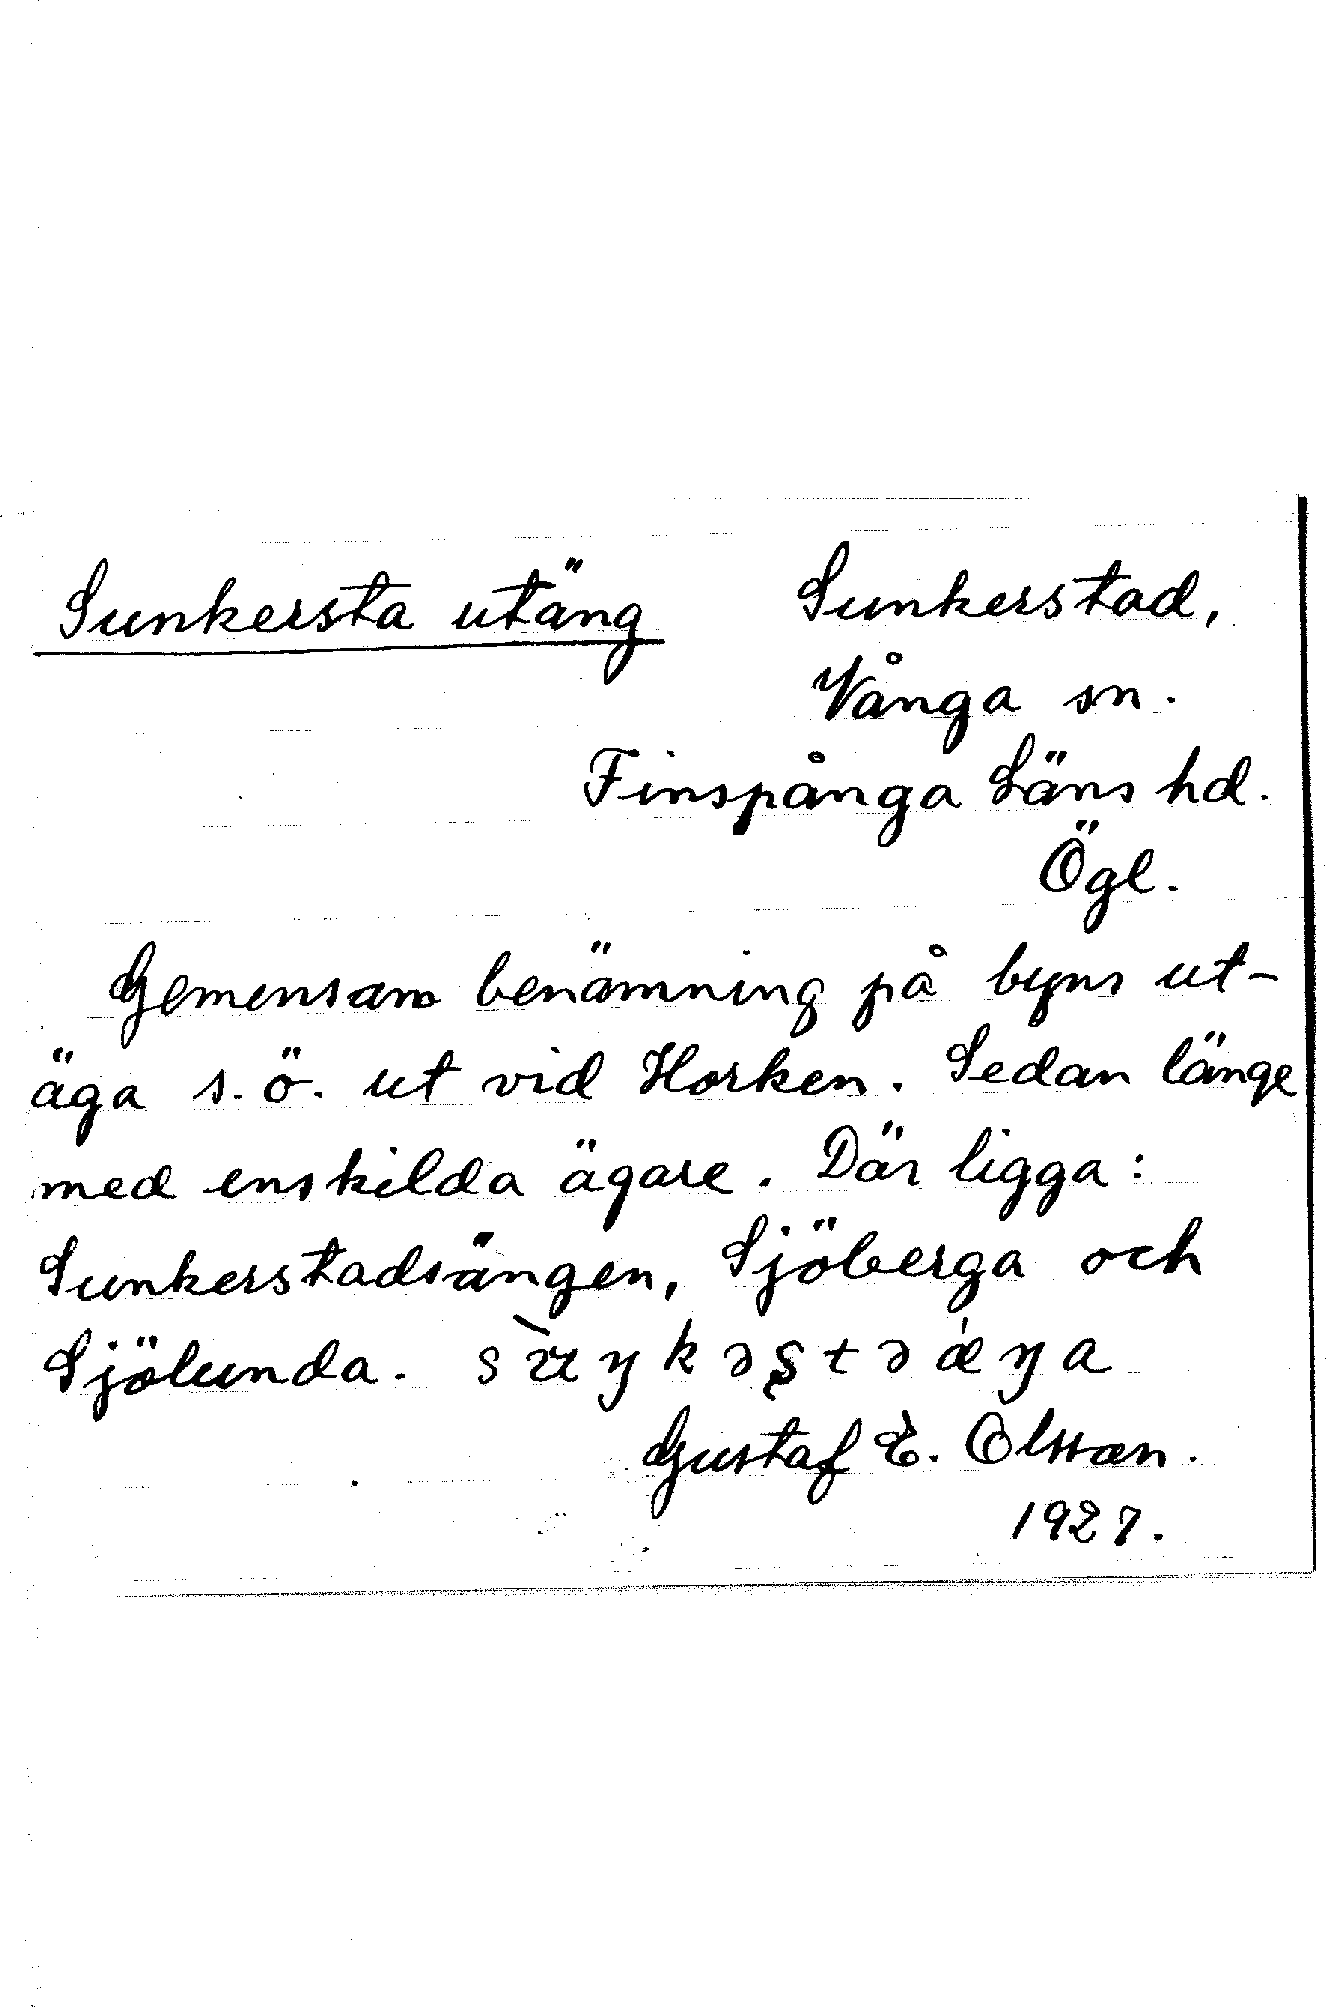 Sunkersta utäng Sunkerstad,
Vånga sn.
Finspånga Läns hd.
Ögl.
Gemensam benämning på byns ut-
äga s.ö. ut vid Horken. Sedan länge
med enskilda ägare. Där ligga:
Sunkerstadsängen, Sjöberga och
Sjölunda.
Gustaf E. Olsson.
1927.